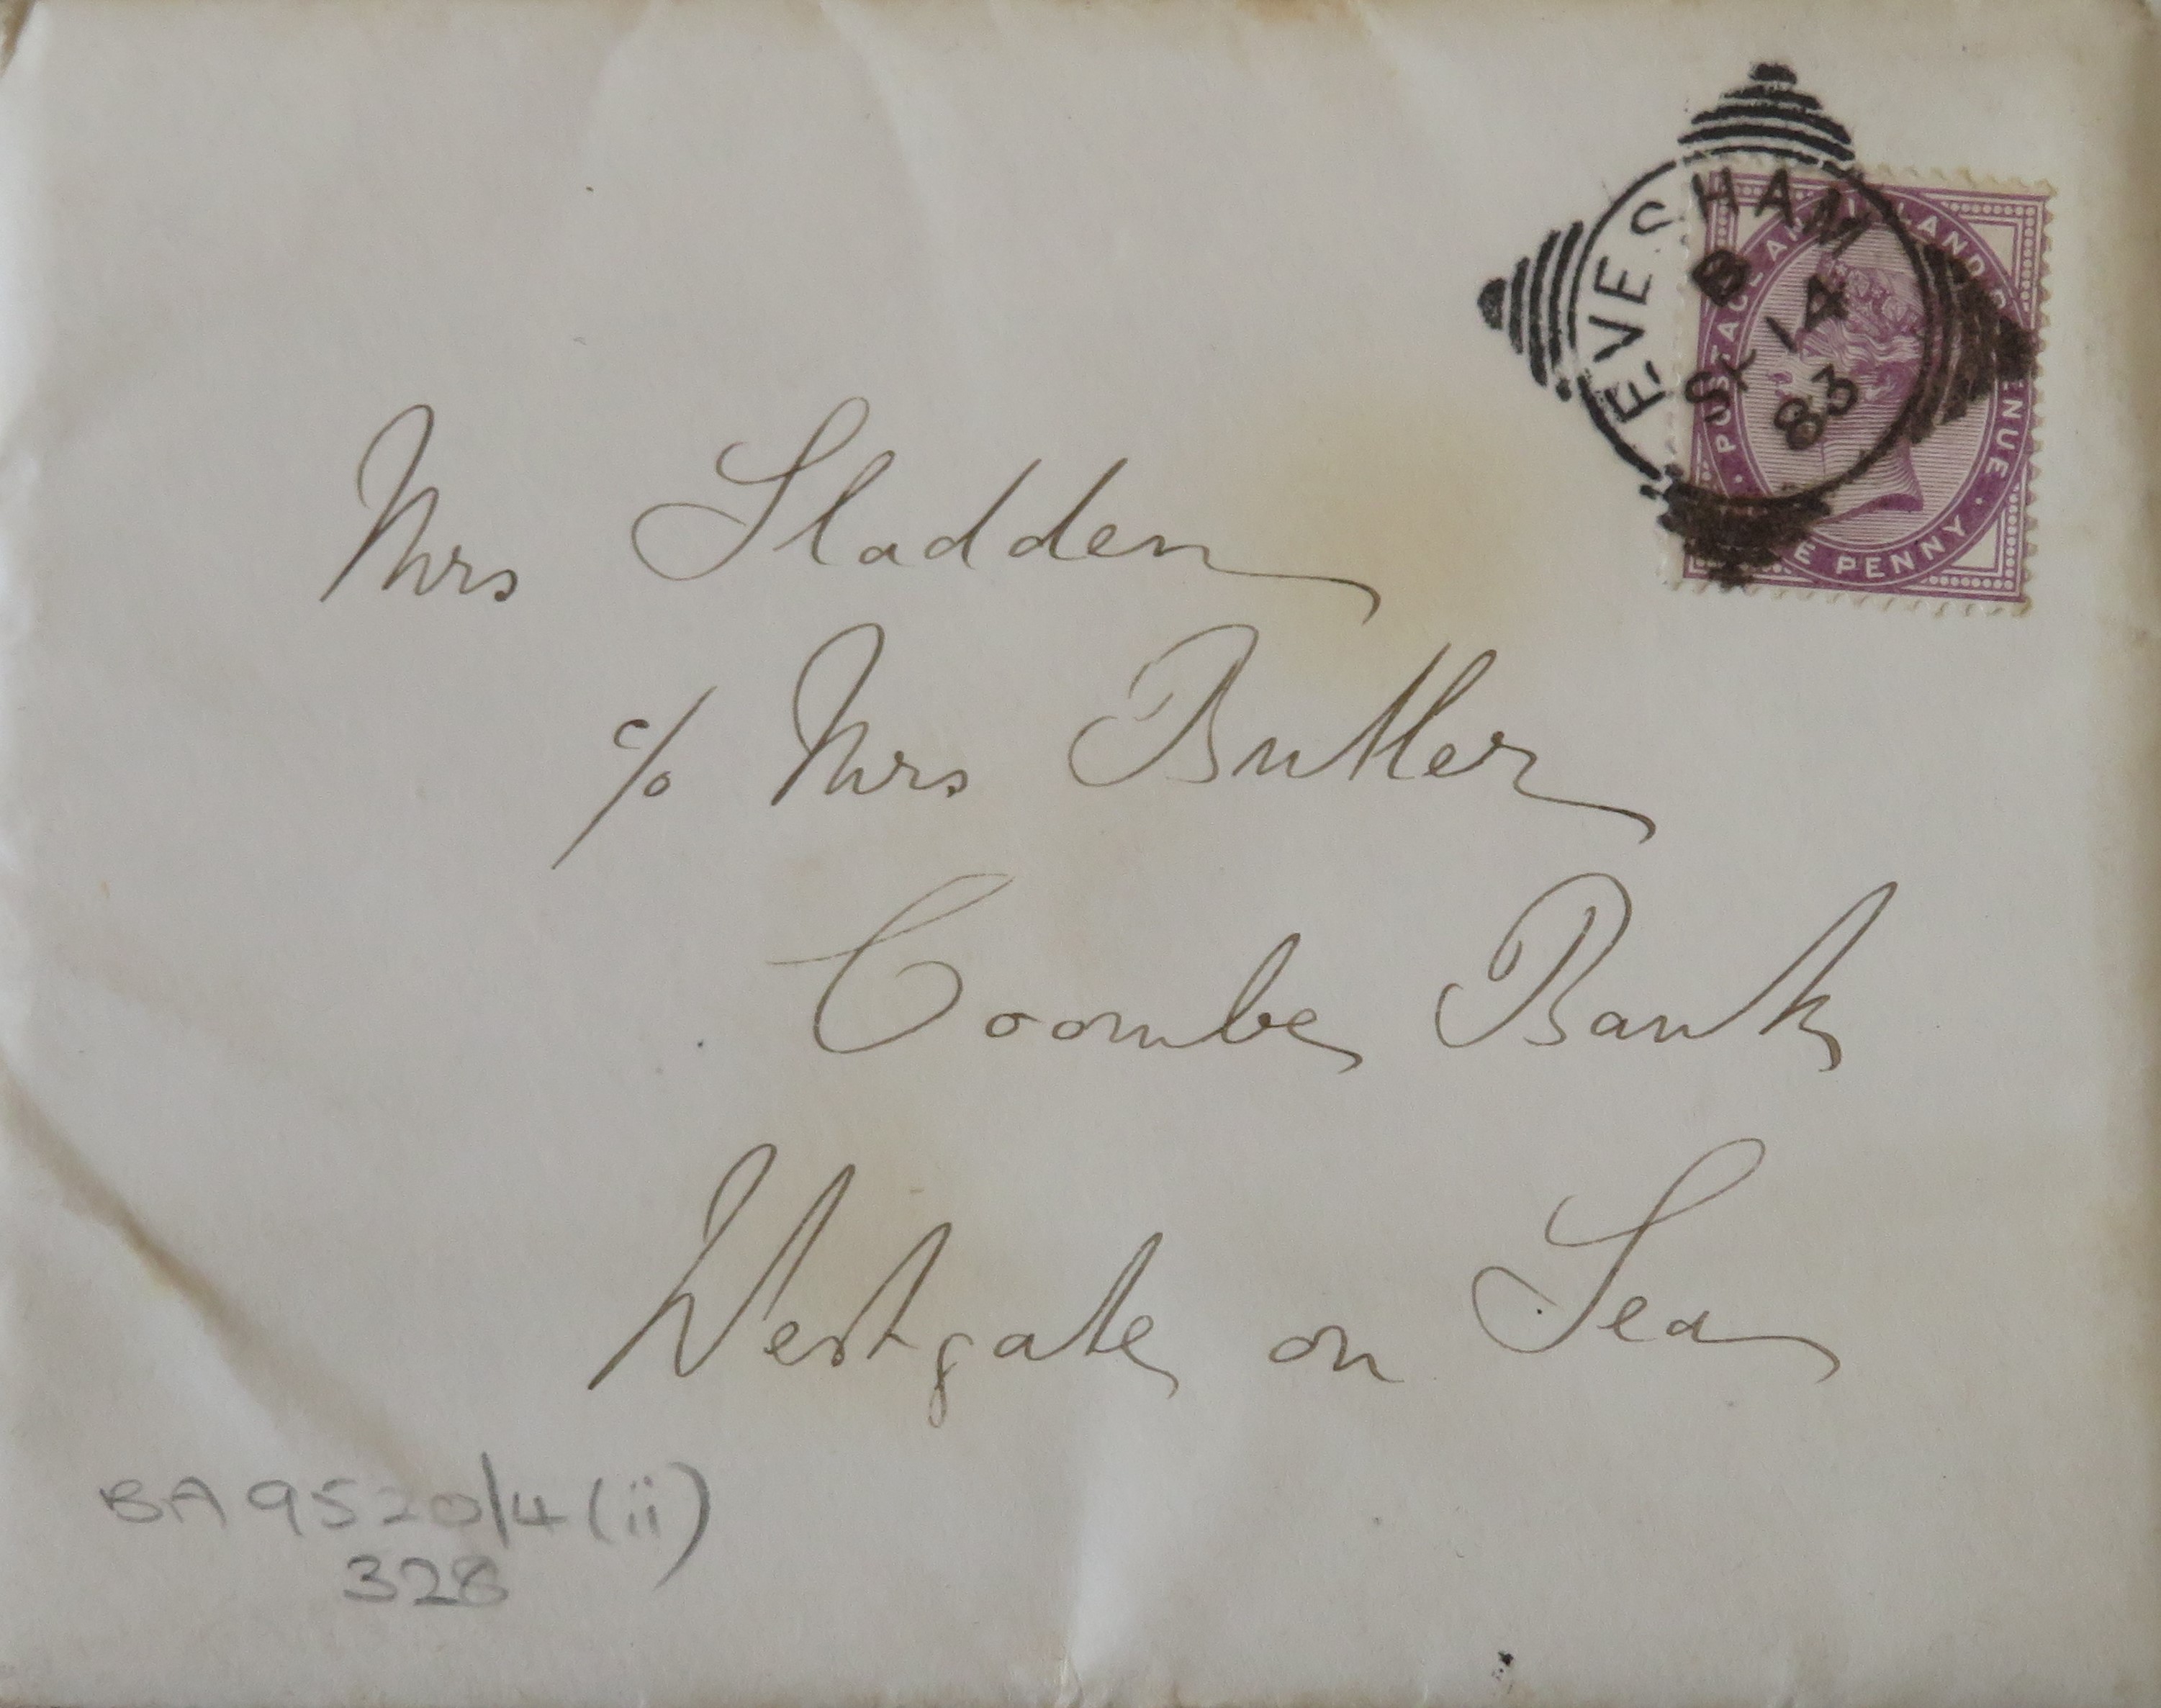 EVESHAM
B
SP 14
83
POSTAGE AND INLAND REVENUE
ONE PENNY
Mrs Sladden
c/o Mrs Butler
Coombe Bank
Westgate on Sea
BA 9520/4 (ii)
328